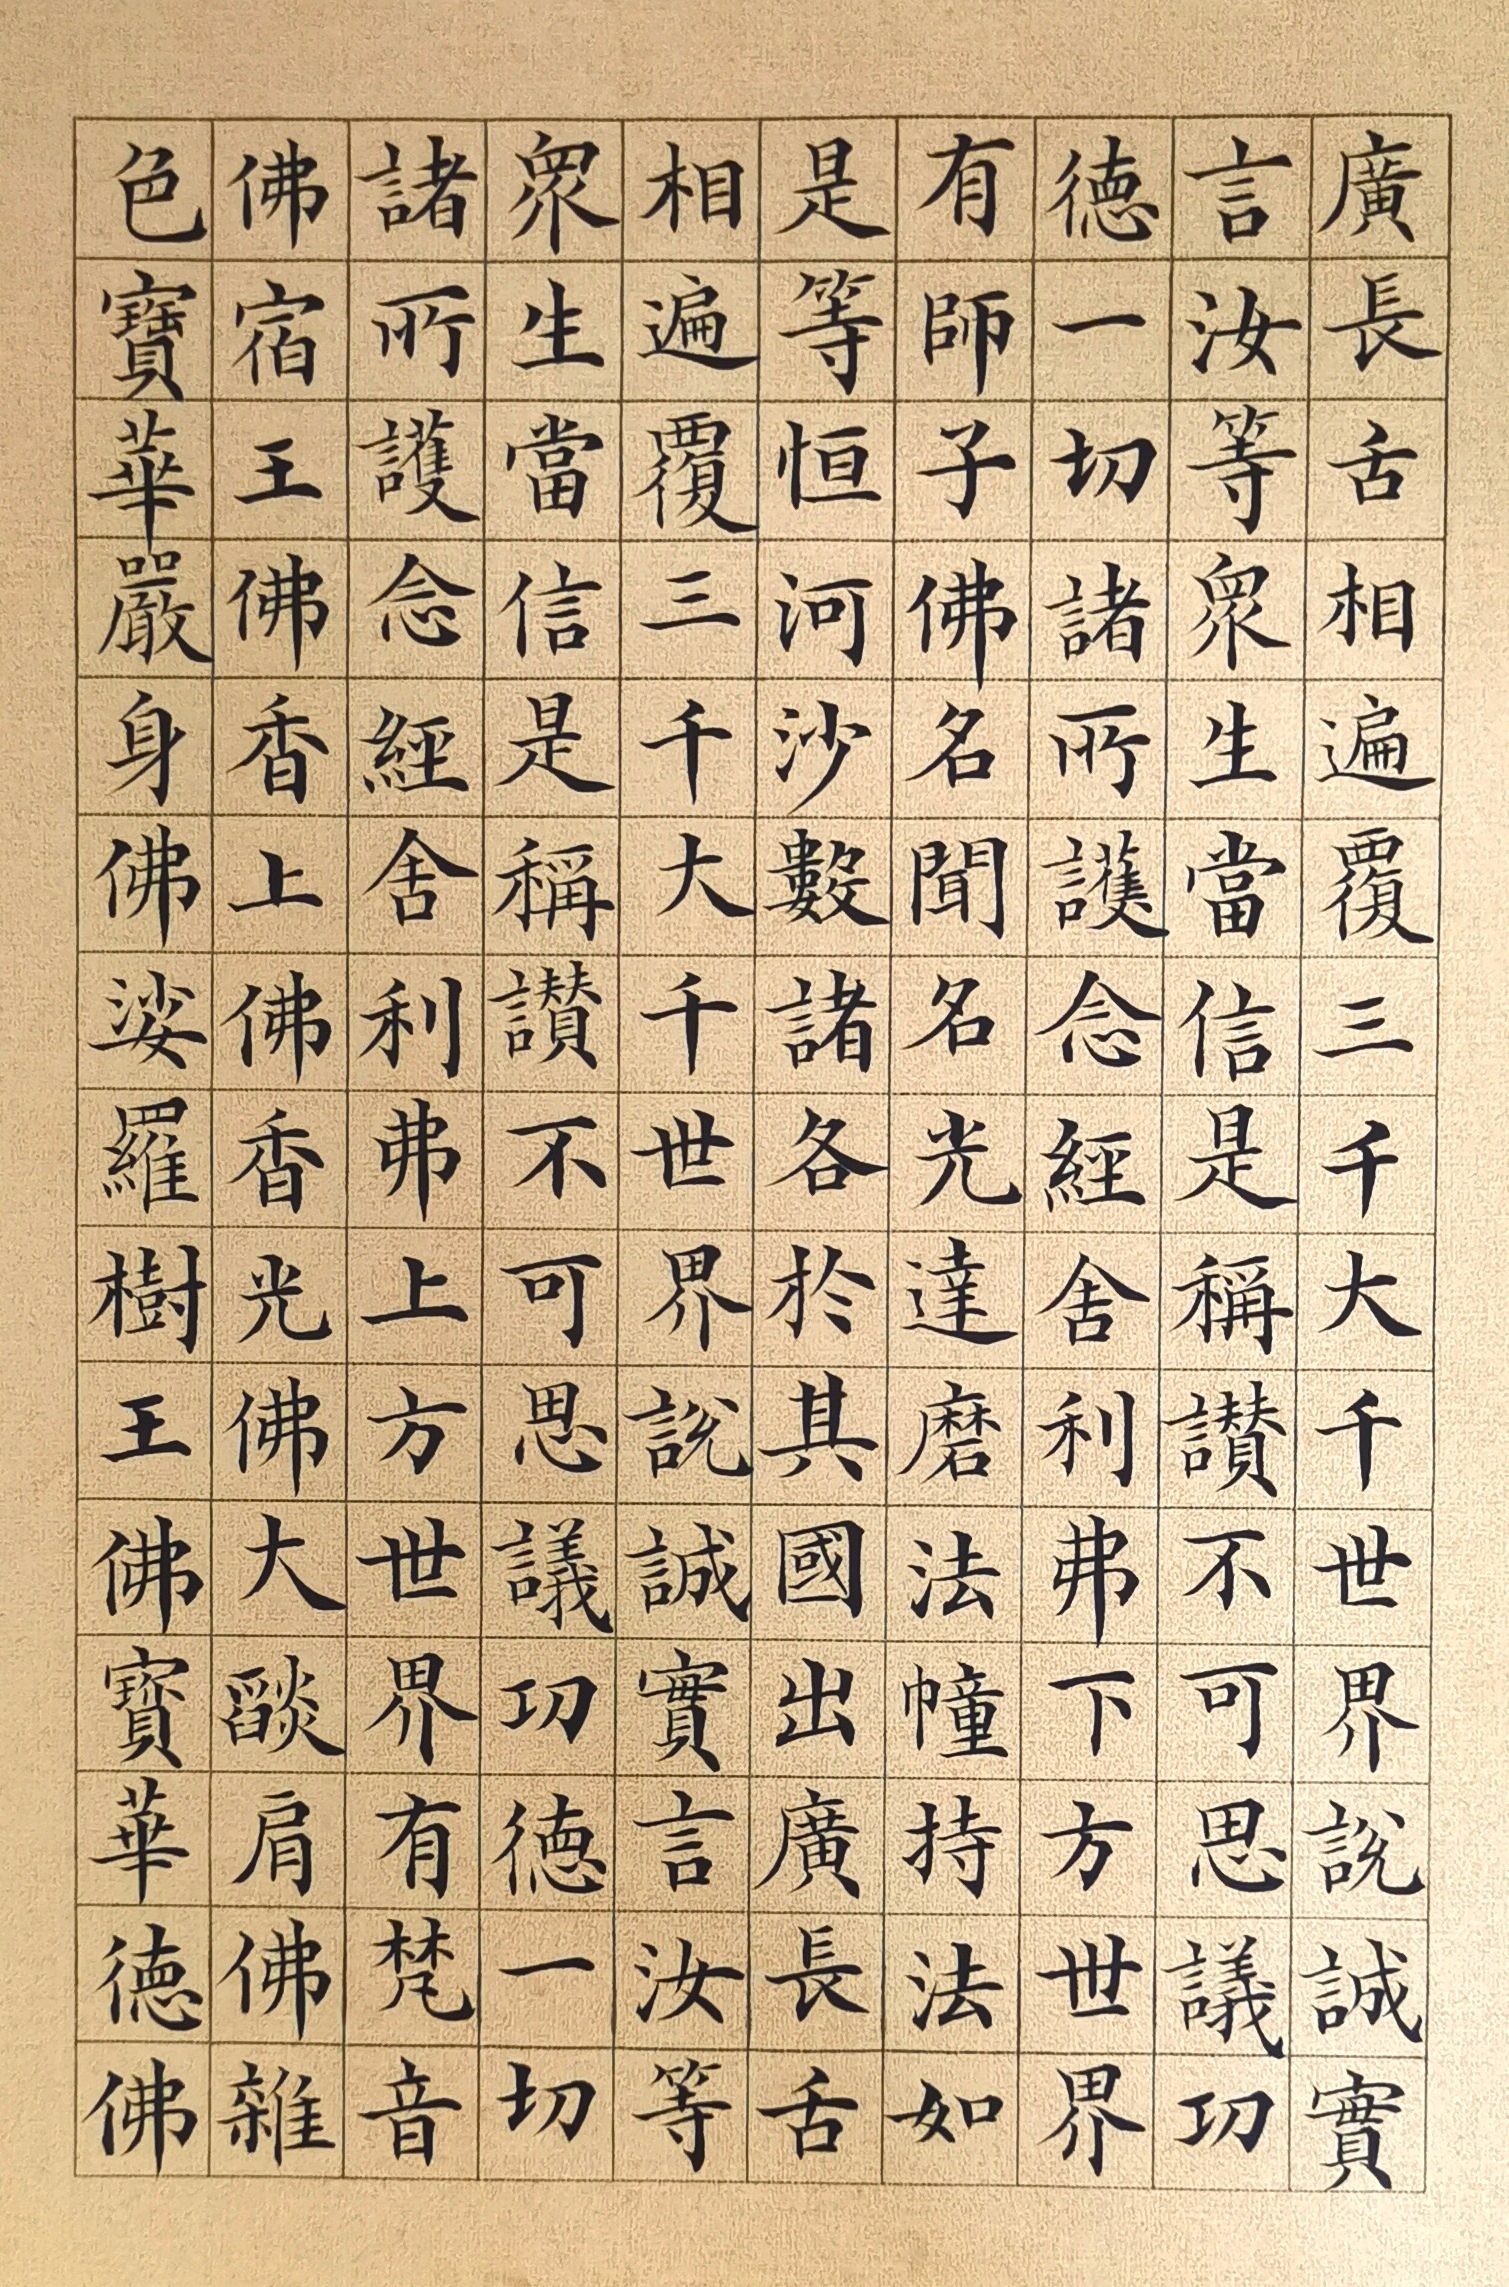 廣長舌相遍覆三千大千世界說誠實
言汝等衆生當信是稱讃不可思議功
德一切諸所護念經舍利弗下方世界
有師子佛名聞名光達磨法幢持法如
是等恒河沙數諸各於其國出廣長舌
相遍覆三千大千世界說誠實言汝等
衆生當信是稱讃不可思議功德一切
諸所護念經舍利弗上方世界有梵音
佛宿王佛香上佛香光佛大燄肩佛雜
色寶華嚴身佛娑羅樹王佛寳華德佛